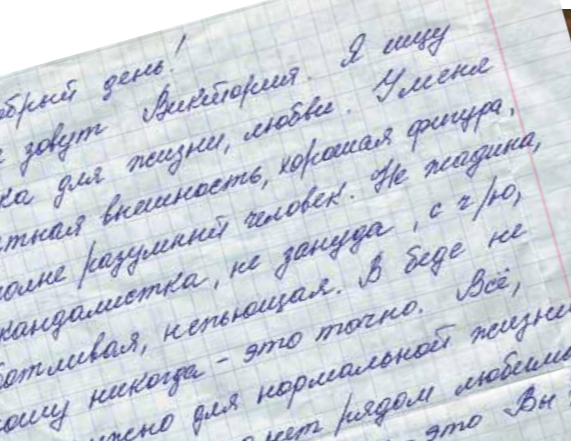 обрый день!
зовут Виктория. Я ищу
ка для жизни, любви. У меня
тная внешность, хорошая фигура,
полне разумный человек. Не жадина,
кандалистка, не зануда, с ч/ю,
ботливая, непьющая. В беде не
ошу никогда - это точно. Всё,
ужно для нормальной жизни
нет рядом любимо
это Вы